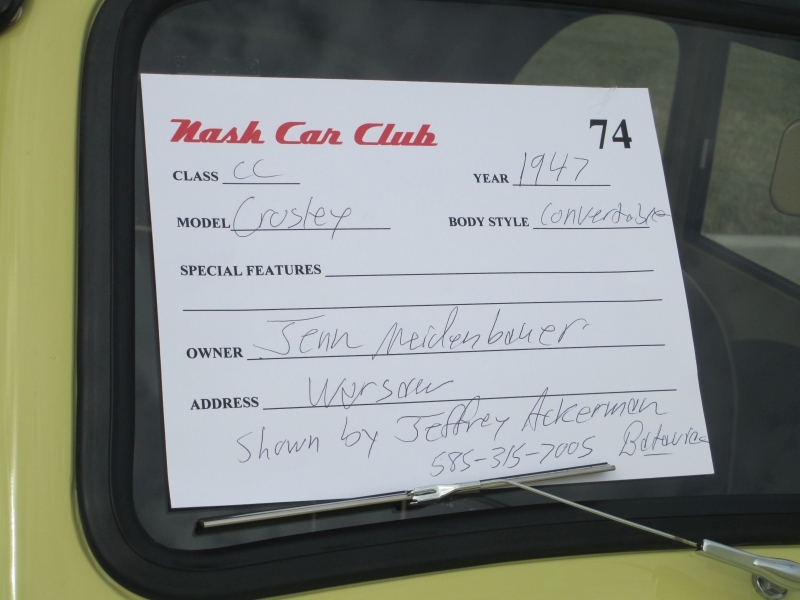 Nash Car Club 74
CLASS CC YEAR 1947
MODEL Crosley BODY STYLE Convertable
SPECIAL FEATURES
OWNER Jenn Meidenbauer
ADDRESS Warsaw
Shown by Jeffrey Ackerman
585-315-7005 Batavia